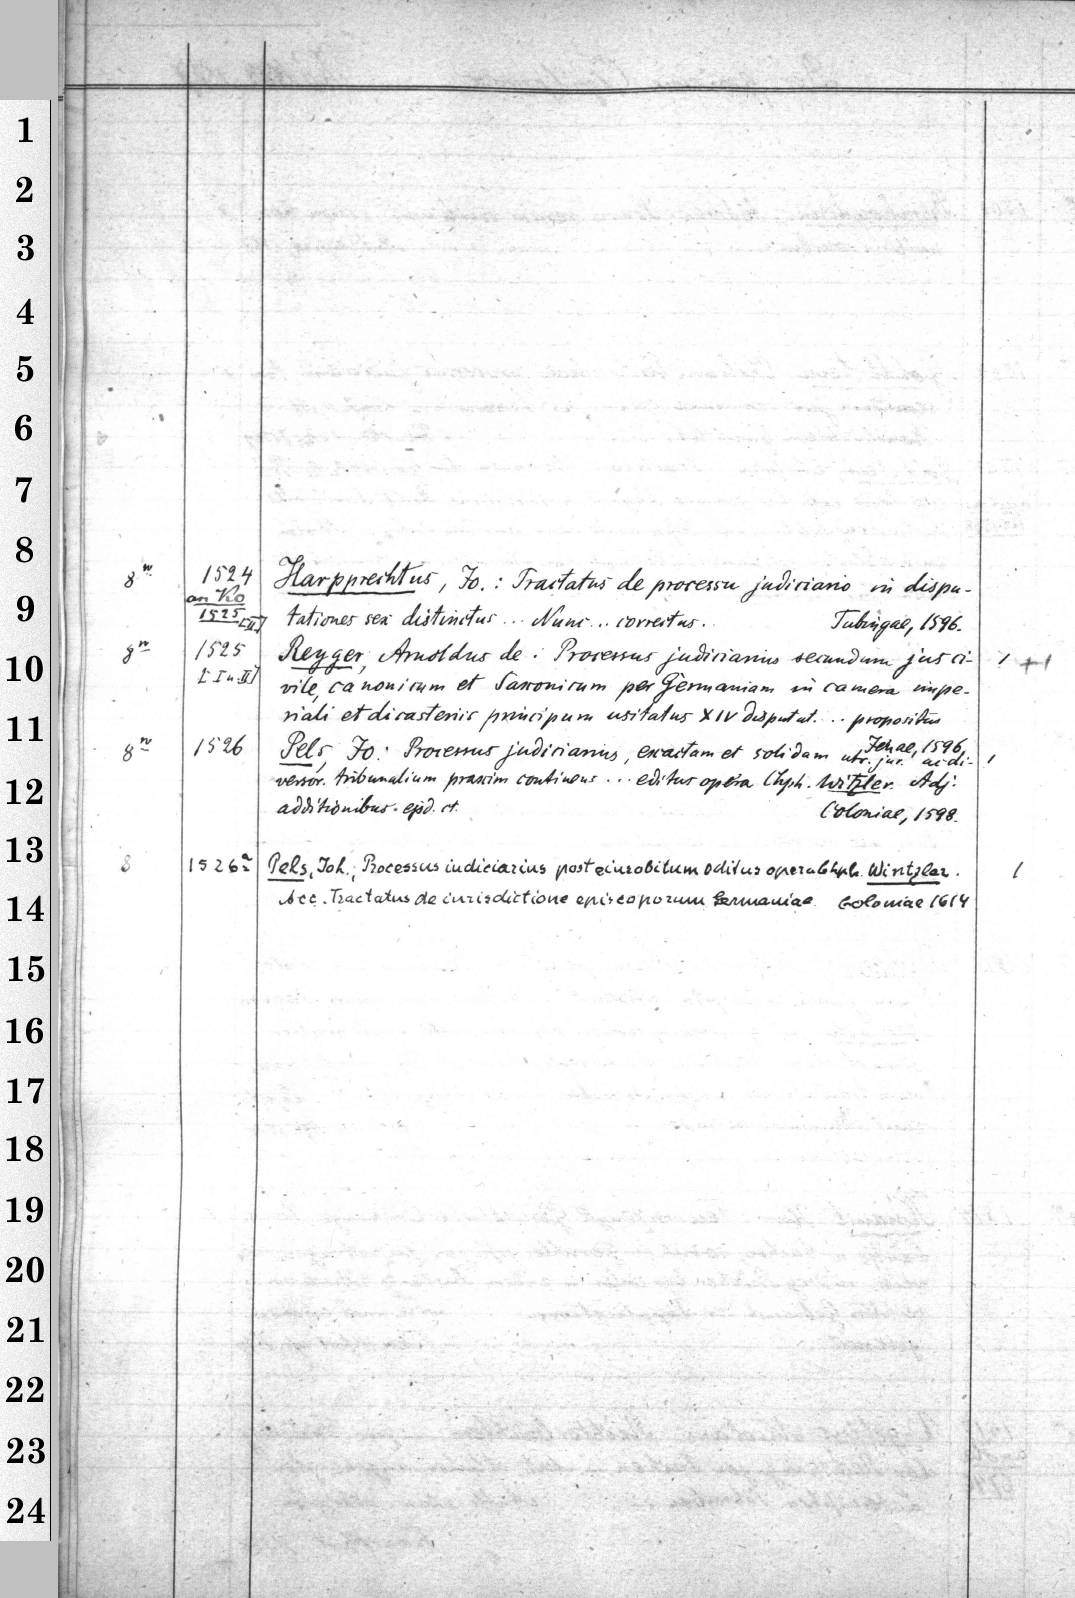 1
2
3
4
5
6
7
8
9
10
11
12
13
14
15
16
17
18
19
20
21
22
23
24
8º 1524 Harpprechtus, Jo.: Tractatus de processu judiciario in dispu-
an Ko
1525 [II] tationes sex distinctus ... Nunc .. correctus. Tubingae, 1596.
8º 1525 Reyger, Arnoldus de: Processus judiciarius secundum jus ci- 1 + 1
[I u. II] vile, canonicum et Saxonicum per Germaniam in camera impe-
riali et dicasteriis principum usitatus XIV disputat. .. propositus
Jenae, 1596.
8º 1526 Pels, Jo: Processus judiciarius, exactam et solidam utr. jur. ac di- 1
versor. tribunalium praxim continens ... editus opera Chph. Witzler. Adj.
additionibus ejsd. Coloniae, 1598.
8 1526a Pels, Joh.: Processus iudiciarius post eius obitum editus opera Chph. Wintzler. 1
Acc. Tractatus de iurisdictione episcoporum Germaniae. Coloniae 1614